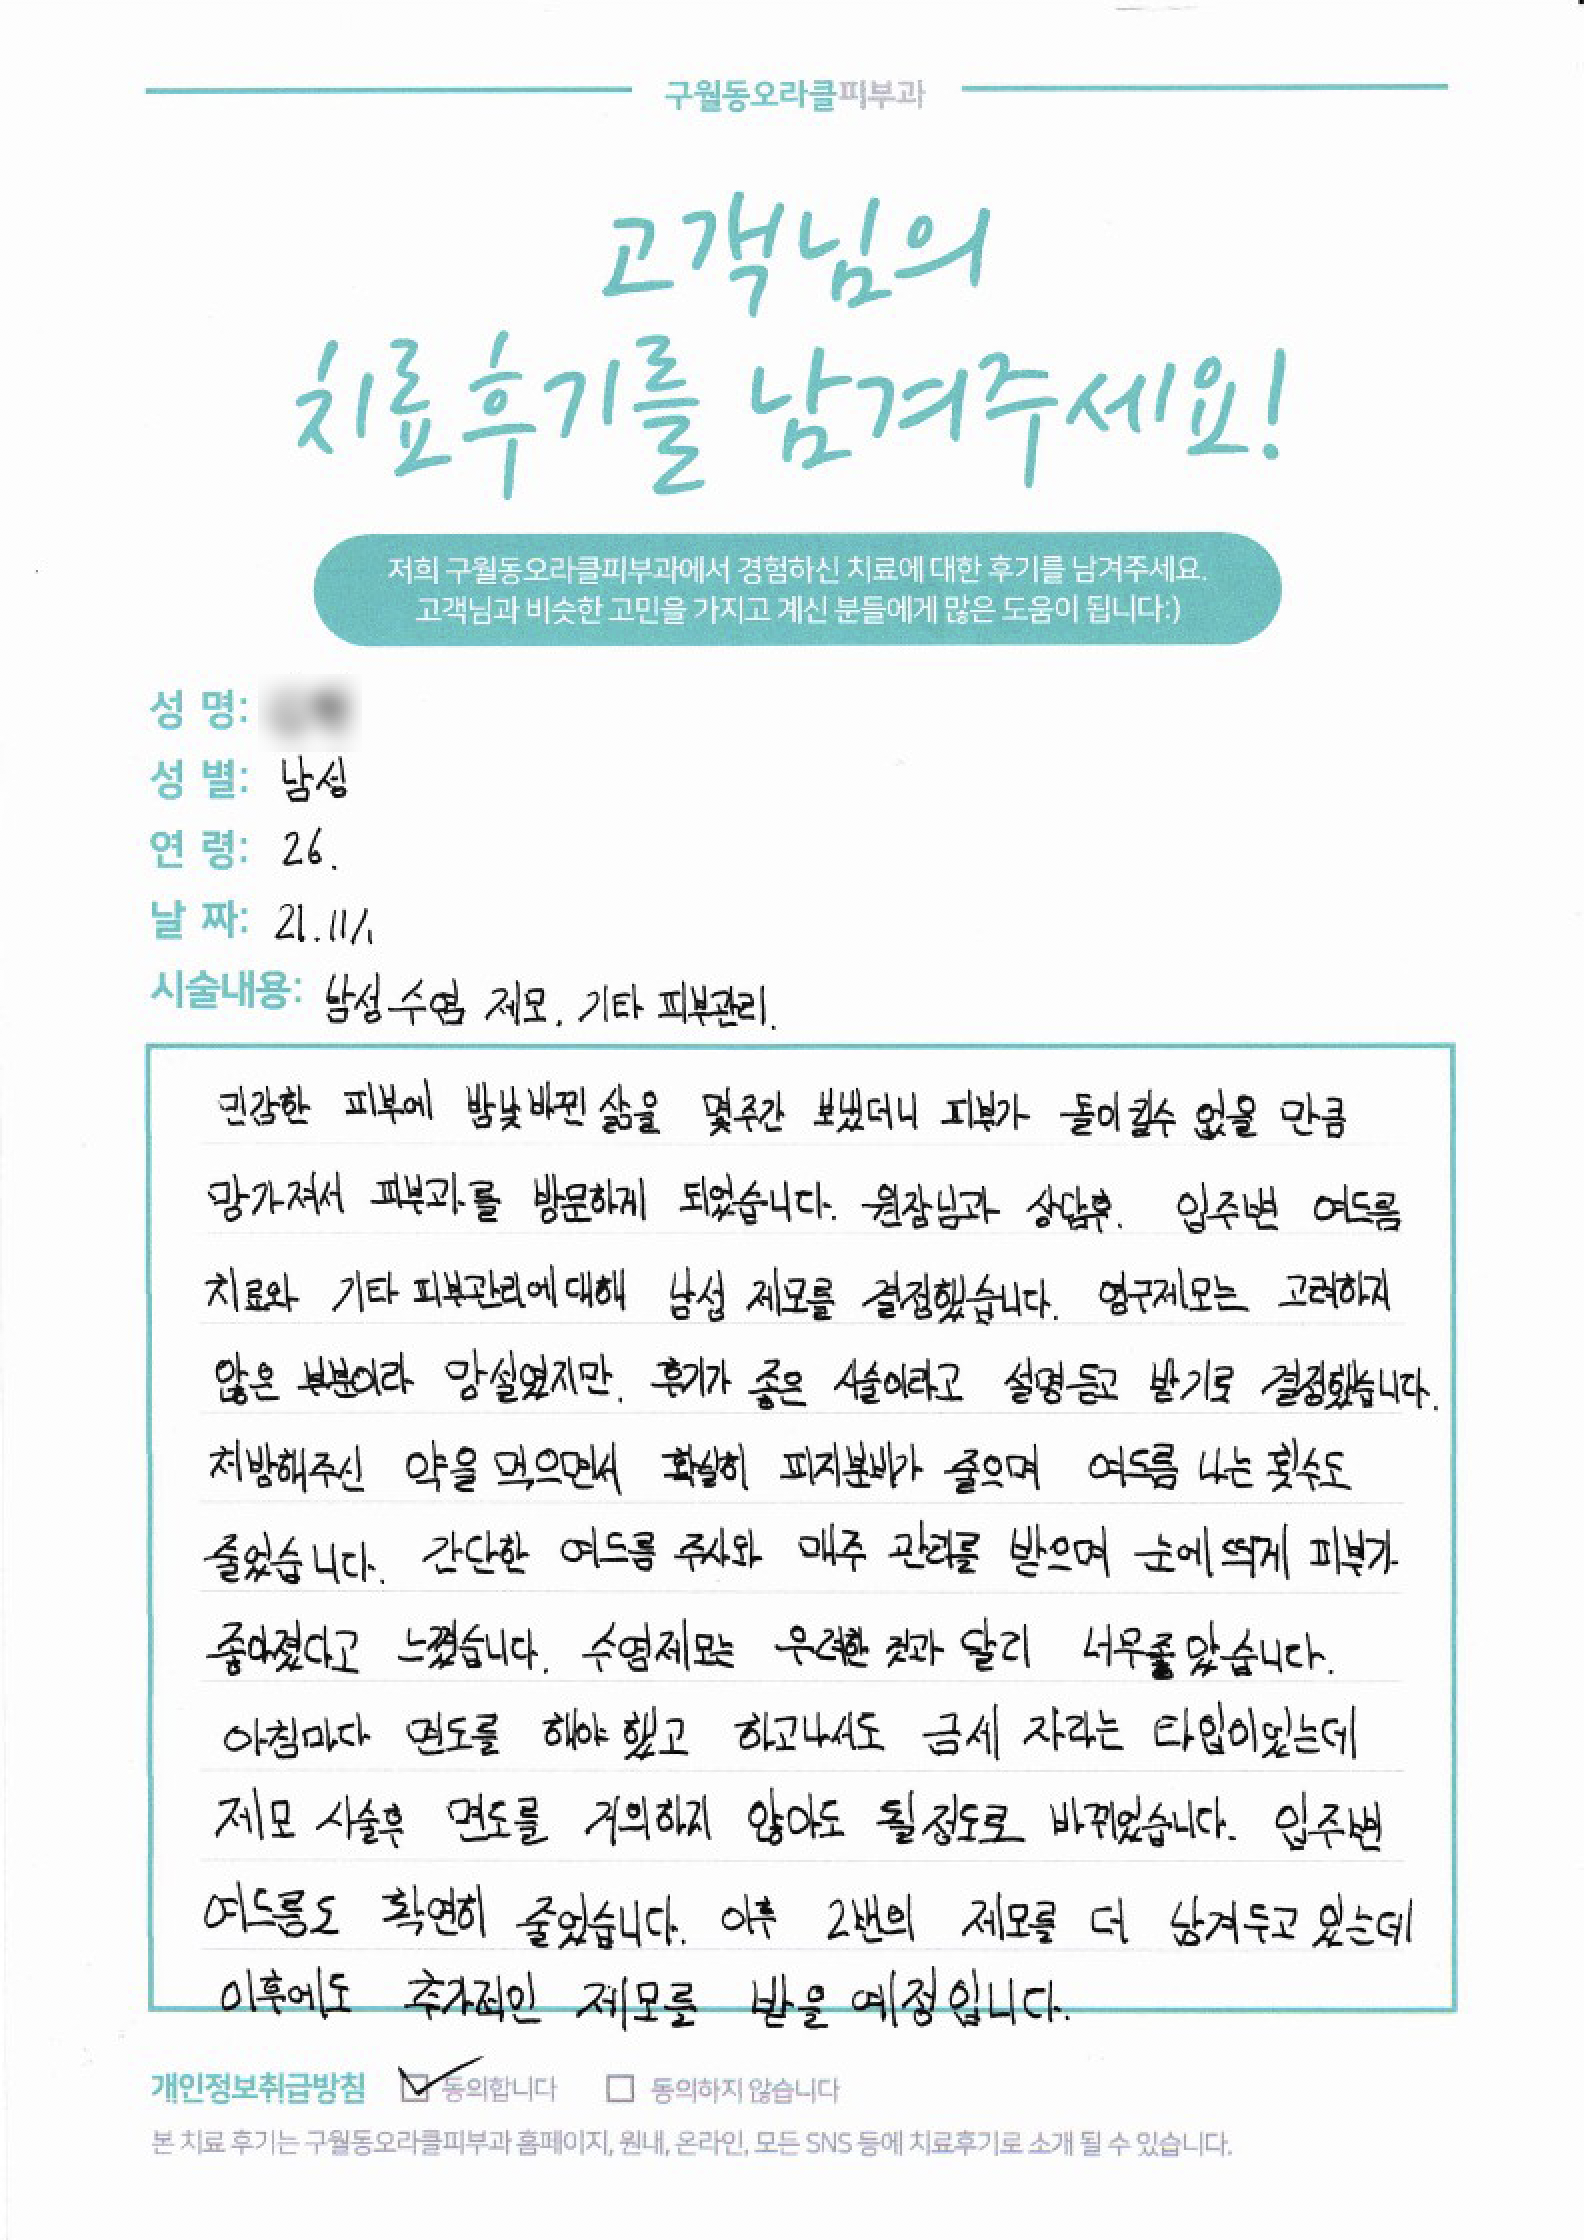 구월동오라클피부과
고객님의
치료후기를 남겨주세요!
저희 구월동오라클피부과에서 경험하신 치료에 대한 후기를 남겨주세요.
고객님과 비슷한 고민을 가지고 계신 분들에게 많은 도움이 됩니다:)
성 명:
성 별: 남성
연 령: 26.
날 짜: 21.11/1
시술내용: 남성수염 제모. 기타 피부관리.
민감한 피부에 밤낮바뀐 삶을 몇주간 보냈더니 피부가 돌이킬수 없을 만큼
망가져서 피부과를 방문하게 되었습니다. 원장님과 상담후. 입주변 여드름
치료와 기타 피부관리에 대해 남성 제모를 결정했습니다. 영구제모는 고려하지
않은 부분이라 망설였지만. 후기가 좋은 시술이라고 설명듣고 받기로 결정했습니다.
처방해주신 약을 먹으면서 확실히 피지분비가 줄으며 여드름 나는 횟수도
줄었습니다. 간단한 여드름 주사와 매주 관리를 받으며 눈에 띄게 피부가
좋아졌다고 느꼈습니다. 수염제모는 우려한 것과 달리 너무좋았습니다.
아침마다 면도를 해야 했고 하고나서도 금세 자라는 타입이었는데
제모 시술후 면도를 거의하지 않아도 될정도로 바뀌었습니다. 입주변
여드름도 확연히 줄었습니다. 이후 2번의 제모를 더 남겨두고 있는데
이후에도 추가적인 제모를 받을 예정입니다.
개인정보취급방침 동의합니다 동의하지 않습니다
본 치료 후기는 구월동오라클피부과 홈페이지, 원내, 온라인, 모든 SNS 등에 치료후기로 소개 될 수 있습니다.